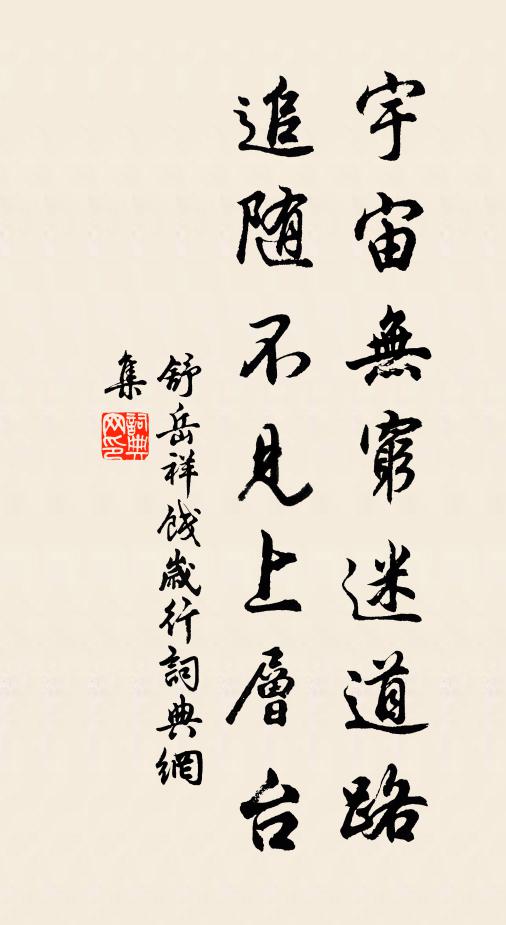 宇宙無窮迷道路
追随不見上層台
舒岳祥餞歲行詞典網
集
詞典
网印